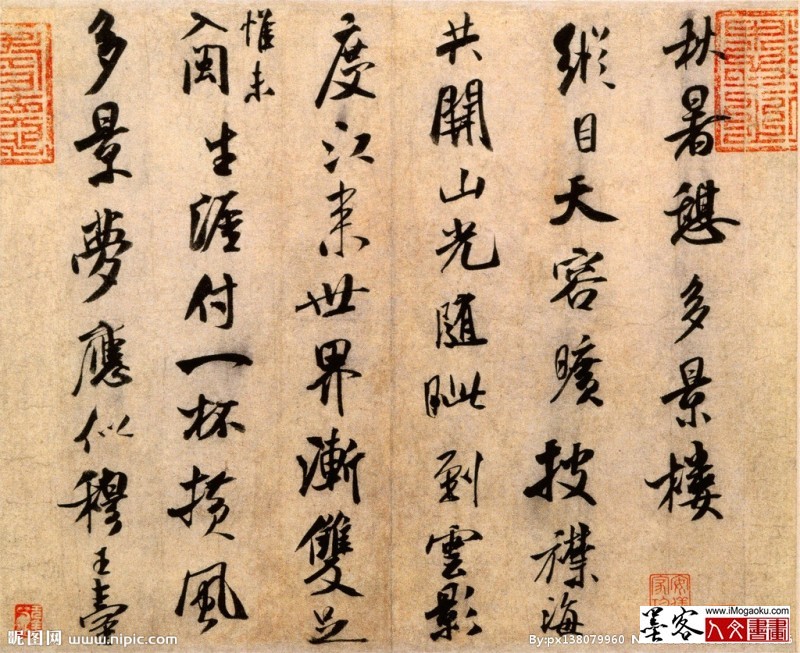 秋暑憩多景樓
縱目天容曠披襟海
共開山光隨眦到雲影
度江來世界漸雙足
惟未
入閩生涯付一杯横風
多景夢應似穆王臺
昵图网 www.nipic.com
By:px138079960
www.iMogaoku.com
墨客
人文書畫